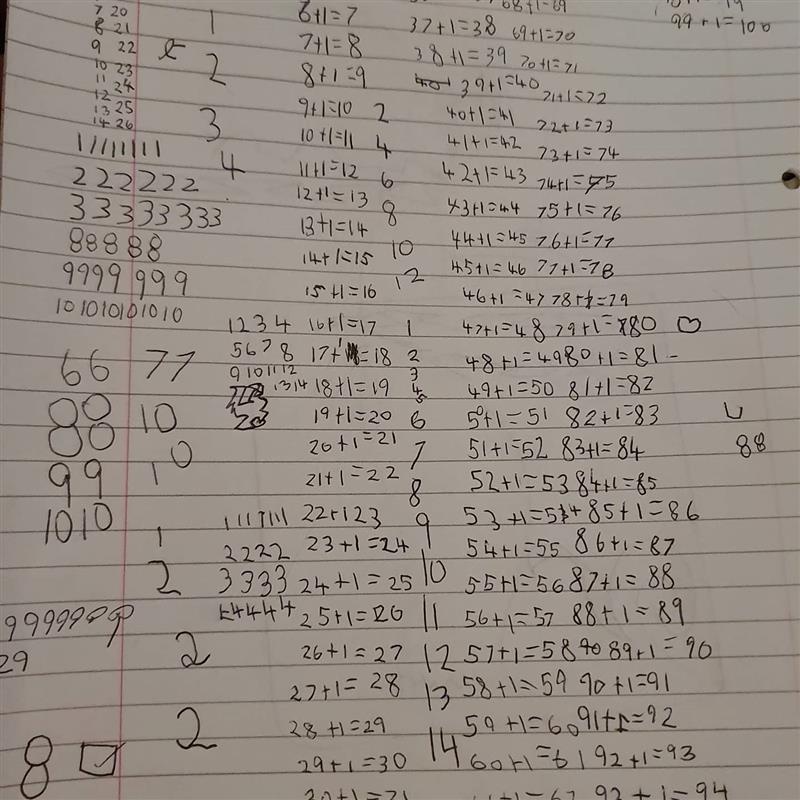 7 20
8 21
9 22
10 23
11 24
12
13 25
14 26
11111111
222222
33333333
88888
9999999
101010101010
66 77
88 10
88
99 10
1010
1
2
9999999
29
2
2
8
1
2
3
4
1234
5678
9 10 11 12
13 14
1111111
2222
3333
4444
6+1=7
7+1=8
8+1=9
9+1=10
10+1=11
11+1=12
12+1=13
13+1=14
14+1=15
15+1=16
16+1=17
17+1=18
18+1=19
19+1=20
20+1=21
21+1=22
22+123
23+1=24
24+1=25
25+1=26
26+1=27
27+1=28
28+1=29
29+1=30
2
4
6
8
10
12
1
2
3
4
5
6
7
8
9
10
11
12
13
14
37+1=38
38+1=39
39+1=40
40+1=41
41+1=42
42+1=43
43+1=44
44+1=45
45+1=46
46+1=47
47+1=48
48+1=49
49+1=50
50+1=51
51+1=52
52+1=53
53+1=54
54+1=55
55+1=56
56+1=57
57+1=58
58+1=59
59+1=60
60+1=61
68+1=69
69+1=70
70+1=71
71+1=72
72+1=73
73+1=74
74+1=75
75+1=76
76+1=77
77+1=78
78+1=79
79+1=80
80+1=81
81+1=82
82+1=83
83+1=84
84+1=85
85+1=86
86+1=87
87+1=88
88+1=89
90 89+1=90
90+1=91
91+1=92
92+1=93
92+1=94
99+1=100
88